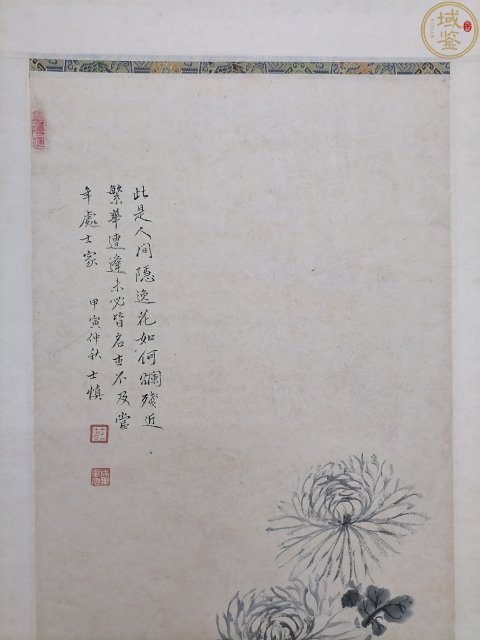 此是人间隐逸花如何斓残近
繁華遭逢未必皆名士不及當
年處士家
甲寅仲秋士慎
域鉴